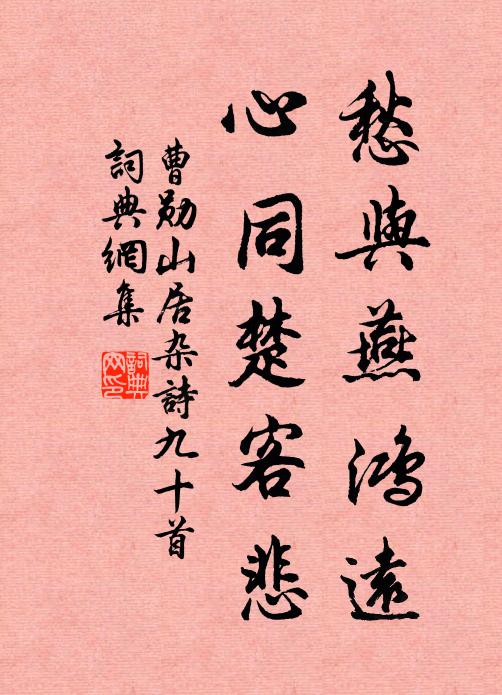 愁與燕鴻遠
心同楚客悲
曹勛山居杂詩九十首
詞典網集
詞典網印